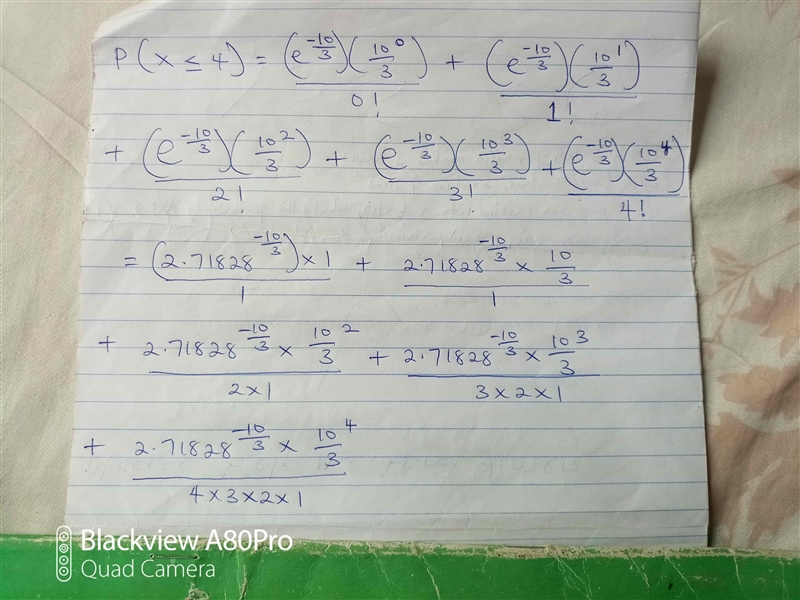 P(x ≤ 4) = (e^(-10/3))(10^0/3)/0! + (e^(-10/3))(10^1/3)/1!
+ (e^(-10/3))(10^2/3)/2! + (e^(-10/3))(10^3/3)/3! + (e^(-10/3))(10^4/3)/4!
= (2.71828^(-10/3)) × 1/1 + 2.71828^(-10/3) × 10/3/1
+ 2.71828^(-10/3) × 10^2/3/2×1 + 2.71828^(-10/3) × 10^3/3/3×2×1
+ 2.71828^(-10/3) × 10^4/3/4×3×2×1
Blackview A80Pro
Quad Camera